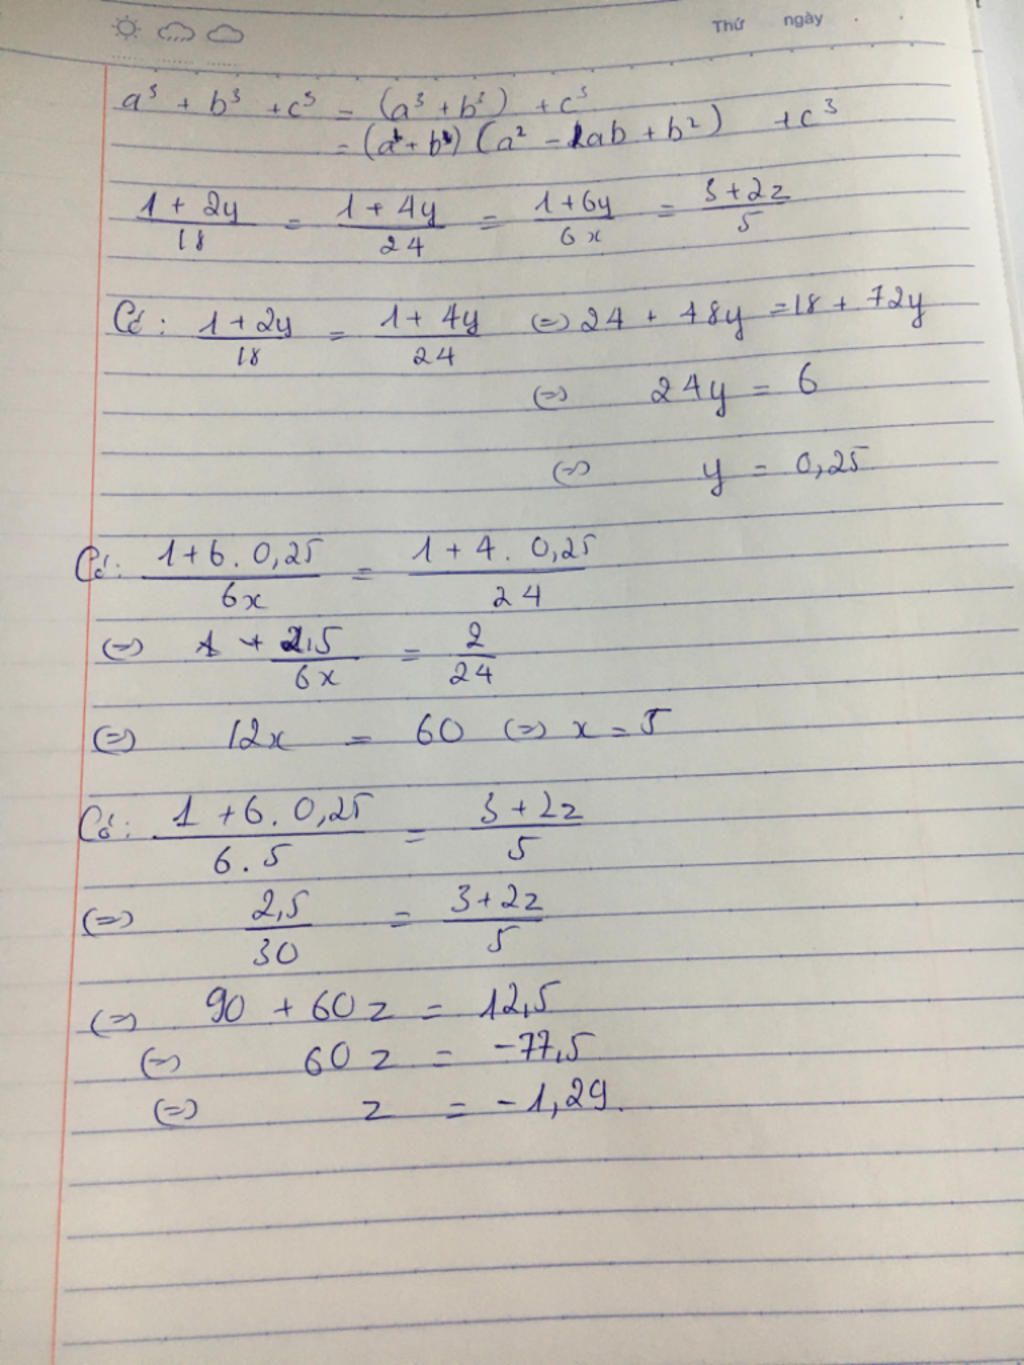 Thứ ngày
a³ + b³ + c³ = (a³ + b³) + c³
= (a + b) (a² - ab + b²) + c³
1 + 2y / 18 = 1 + 4y / 24 = 1 + 6y / 6x = 3 + 2z / 5
Có : 1 + 2y / 18 = 1 + 4y / 24 (=) 24 + 48y = 18 + 72y
(=) 24y = 6
(=) y = 0,25
Có : 1 + 6 . 0,25 / 6x = 1 + 4 . 0,25 / 24
(=) 2,5 / 6x = 2 / 24
(=) 12x = 60 (=) x = 5
Có : 1 + 6 . 0,25 / 6 . 5 = 3 + 2z / 5
(=) 2,5 / 30 = 3 + 2z / 5
(=) 90 + 60z = 12,5
(=) 60z = -77,5
(=) z = -1,29.